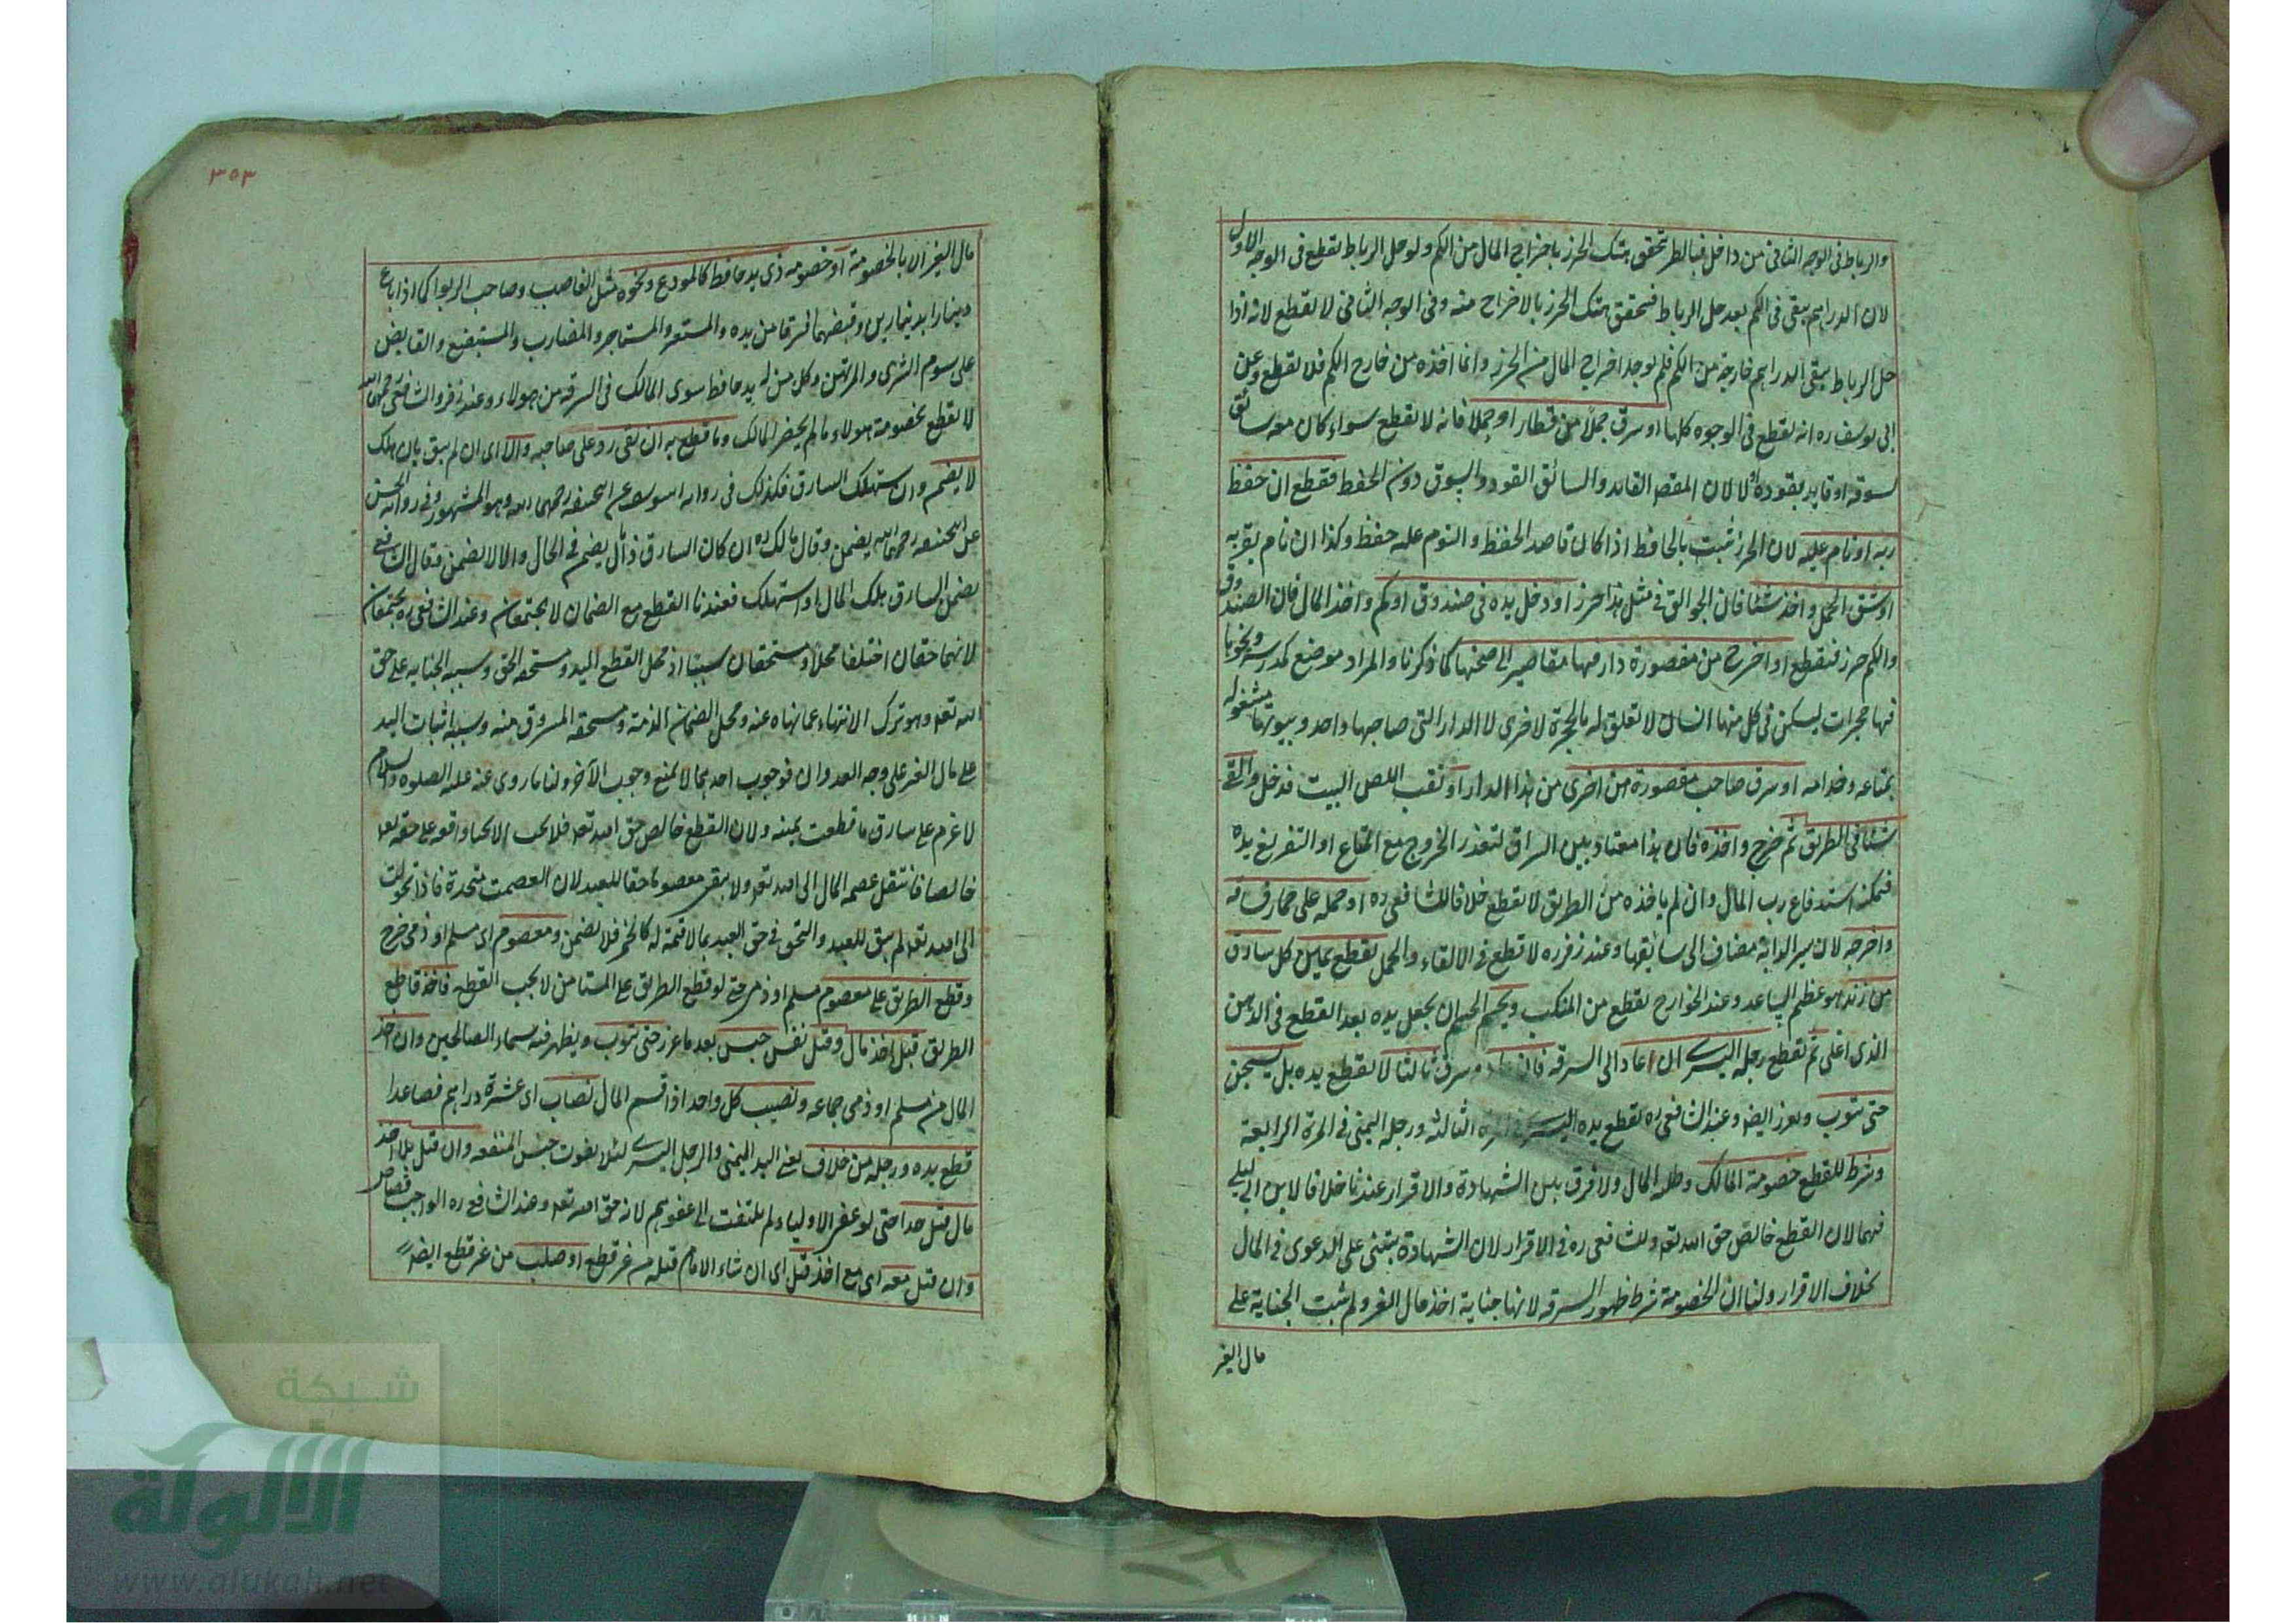 والرباط فى الوجه الثانى من داخل فبالطر تحقق هتك الحرز باخراج المال من الكم ولو حل الرباط يقطع فى الوجه الاول
لان الدراهم يبقى فى الكم بعد حل الرباط فتحقق هتك الحرز بالاخراج منه وفى الوجه الثانى لا يقطع لانه اذا
حل الرباط يبقى الدراهم خارجة من الكم فلم يوجد اخراج المال من الحرز وانما اخذه من خارج الكم فلا يقطع وعن
ابى يوسف ره انه يقطع فى الوجوه كلها او سرق جملا من قطار او حملا فانه لا يقطع سواء كان معه سائق
يسوقه او قايد يقوده او لا لان المقصد القايد والسائق القود والسوق دون الحفظ فقطع ان حفظ
ربه او نام عليه لان الحرز يثبت بالحافظ اذا كان قاصد الحفظ والنوم عليه حفظ وكذا ان نام بقربه
او شق الحمل واخذ شيئا فان الجوالق فى مثل هذا حرز او دخل يده فى صندوق او كم واخذ المال فان الصندوق
والكم حرز فيقطع او اخرج من مقصورة دار فيها مقاصير الى صحنها كما ذكرنا والمراد موضع كمدرسة ونحوها
فيها حجرات يسكن فى كل منها انسان لا تعلق له بالحجرة الاخرى لا الدار التى صاحبها واحد وبيوتها مشغوله
بمتاعه وخدامه او سرق صاحب مقصورة من اخرى من هذا الدار او نقب اللص البيت فدخل والقى
شيئا فى الطريق ثم خرج واخذه فان هذا معتاد بين السراق لتعذر الخروج مع المتاع او التفريغ يده
فيمكنه استدفاع رب المال وان لم ياخذه من الطريق لا يقطع خلافا للشافعى ره او حمله على حمار فساقه
واخرجه لان سير الدابة مضاف الى سايقها وعند زفر ره لا قطع فى الالقاء والحمل يقطع يمين كل سارق
من زنده هو عظم الساعد وعند الخوارج يقطع من المنكب ويحسم الحسم ان يجعل يده بعد القطع فى الدهن
الذى اغلى ثم يقطع رجله اليسرى ان اعاد الى السرقه فان عاد وسرق ثالثا لا يقطع يده بل يسجن
حتى يتوب ويعزر ايضا وعند الشافعى ره يقطع يده اليسرى فى المرة الثالثه ورجله اليمنى فى المرة الرابعة
وشرط للقطع خصومة المالك وطلبه المال ولا فرق بين الشهادة والاقرار عندنا خلافا لابن ابى ليلى
فيهما لان القطع خالص حق الله تعه وللشافعى ره فى الاقرار لان الشهادة يبتنى على الدعوى فى المال
بخلاف الاقرار ولنا ان الخصومة شرط ظهور السرقه لانها جناية اخذ مال الغير ولم يثبت الجناية على
مال الغير
٣٥٣
مال الغير الا بالخصومة او خصومه ذى يد حافظ كالمودع ونحوه مثل الغاصب وصاحب الربوا كما اذا باع
دينارا بدينارين وقبضهما فسرقا من يده والمستعير والمستاجر والمضارب والمستبضع والقابض
على سوم الشرى والمرتهن وكل من له يد حافظ سوى المالك فى السرقه من هولاء وعند زفر والشافعى رحمهما الله
لا يقطع بخصومة هولاء ما لم يحضر المالك وما قطع به ان بقى رد على صاحبه والا اى ان لم يبق بان هلك
لا يضمن وان استهلك السارق فكذلك فى رواية ابى يوسف عن ابى حنيفه رحمهما الله وهو المشهور وفى رواية الحسن
عن ابى حنيفه رحمهما الله يضمن وقال مالك ره ان كان السارق ذا مال يضمن فى الحال والا لا يضمن وقال الشافعى
يضمن السارق هلك المال او استهلك فعندنا القطع مع الضمان لا يجتمعان وعند الشافعى ره يجتمعان
لانهما حقان اختلفا محلا ومستحقان سببا اذ محل القطع اليد ومستحقه الحق وسببه الجنايه على حق
الله تعه وهو ترك الانتهاء عما نهاه عنه ومحل الضمان الذمة ومستحقه المسروق منه وسببه اثبات اليد
على مال الغير على وجه العدوان فوجوب احدهما لا يمنع وجوب الآخر ولنا ما روى عنه عليه الصلوة والسلام
لا غرم على سارق ما قطعت يمينه ولان القطع خالص حق الله تعه فلا يجب الا بجناية واقعه على حقه تعه
خالصا فانتقل عصمه المال الى الله تعه ولا يبقى معصوما حقا للعبد لان العصمت متحدة فاذا تحولت
الى الله تعه لم يبق للعبد والتحق فى حق العبد بما لا قيمة له كالخمر فلا يضمن ومعصوم اى مسلم او ذمى خرج
وقطع الطريق على معصوم مسلم او ذمى حتى لو قطع الطريق على المستامن لا يجب القطع فاخذ قاطع
الطريق قبل اخذ مال وقتل نفس حبس بعد ما عزر حتى يتوب ويظهر فيه سماء الصالحين وان اخذ
المال من مسلم او ذمى جماعه ونصيب كل واحد اذا قسم المال نصاب اى عشرة دراهم فصاعدا
قطع يده ورجله من خلاف يعنى اليد اليمنى والرجل اليسرى لئلا يفوت جنس المنفعه وان قتل بلا اخذ
مال قتل حدا حتى لو عفى الاولياء لم يلتفت الى عفوهم لانه حق الله تعه وعند الشافعى ره الواجب قصاص
وان قتل معه اى مع اخذ قتل اى ان شاء الامام قتله من غير قطع او صلب من غير قطع ايضا
شبكة
الألوكة
www.alukah.net